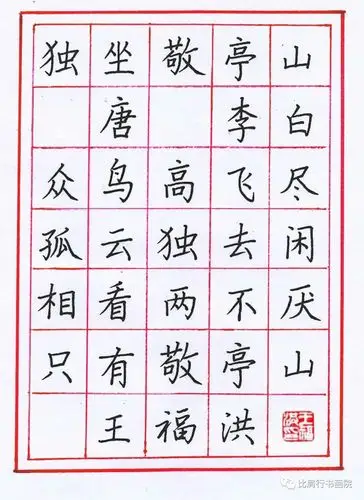 独坐敬亭山
唐 李白
众鸟高飞尽
孤云独去闲
相看两不厌
只有敬亭山
王福洪
王福洪印
比肩行书画院